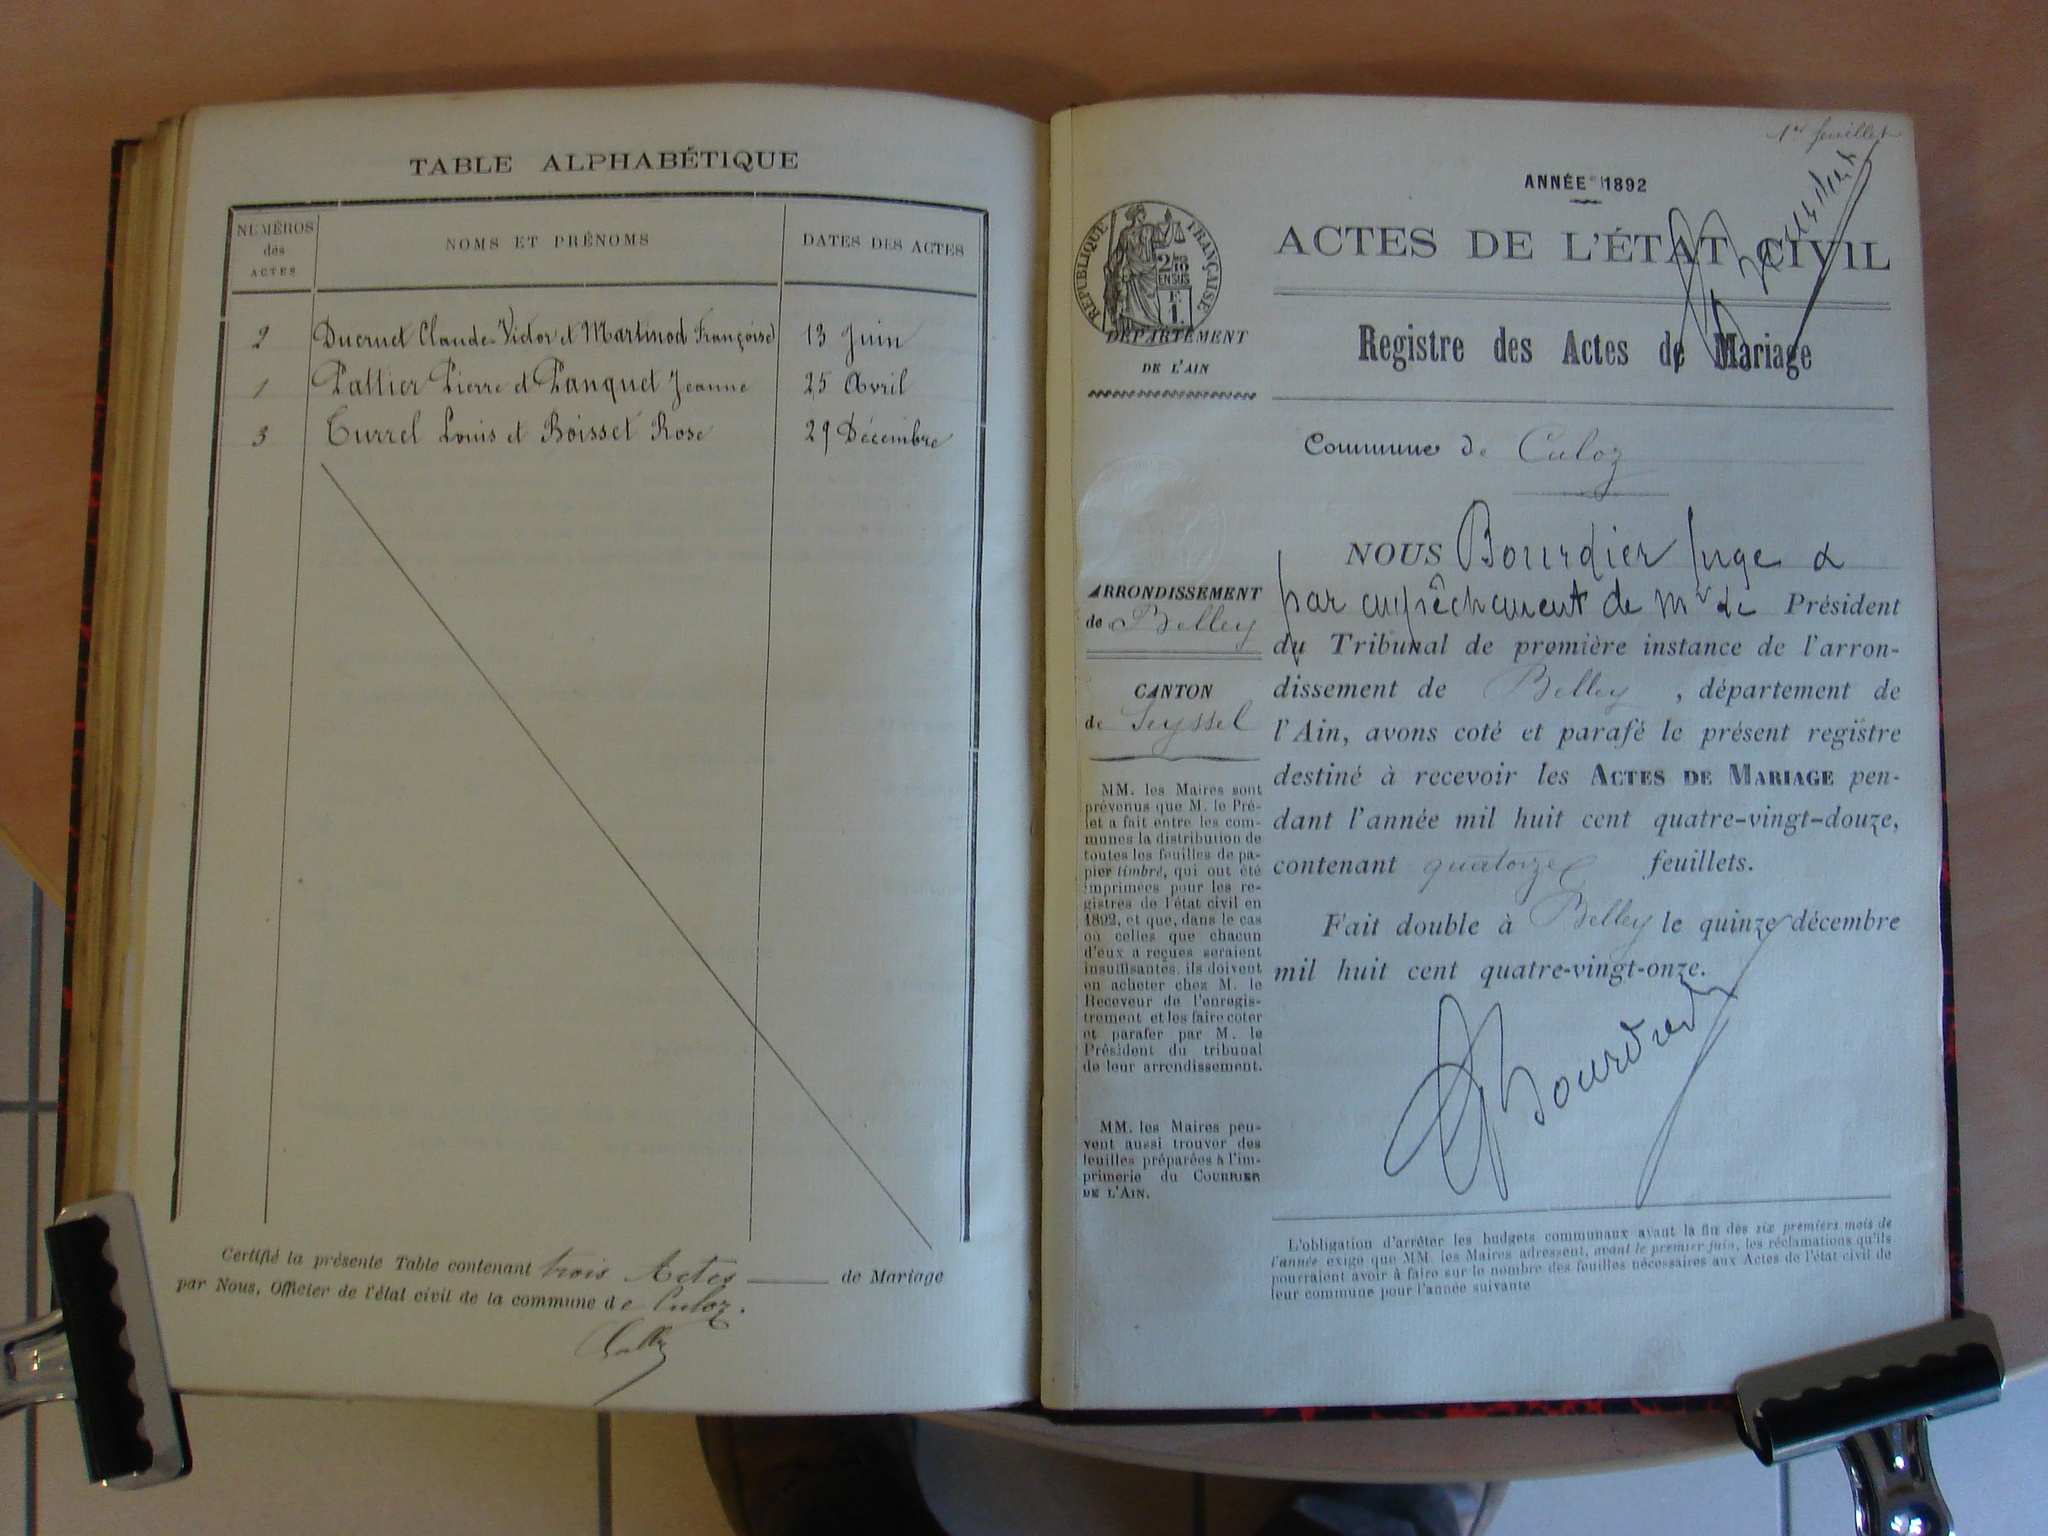 TABLE ALPHABÉTIQUE
NUMÉROS
des
ACTES
NOMS ET PRÉNOMS
DATES DES ACTES
2 Ducruet Claude-Victor et Martinod Françoise 13 Juin
1 Pattier Pierre et Panquet Jeanne 25 Avril
3 Turrel Louis et Boisset Rose 29 Décembre
Certifié la présente Table contenant trois Actes de Mariage
par Nous, Officier de l'état civil de la commune de Culoz.
1er feuillet
ANNÉE 1892
ACTES DE L'ÉTAT CIVIL
RÉPUBLIQUE FRANÇAISE
2/10
EN SUS
F.
1.
DÉPARTEMENT
DE L'AIN
Registre des Actes de Mariage
Commune de Culoz
ARRONDISSEMENT
de Belley
CANTON
de Seyssel
MM. les Maires sont
prévenus que M. le Pré-
fet a fait entre les com-
munes la distribution de
toutes les feuilles de pa-
pier timbré, qui ont été
imprimées pour les re-
gistres de l'état civil en
1892, et que, dans le cas
où celles que chacun
d'eux a reçues seraient
insuffisantes, ils doivent
en acheter chez M. le
Receveur de l'enregis-
trement et les faire coter
et parafer par M. le
Président du tribunal
de leur arrondissement.
MM. les Maires peu-
vent aussi trouver des
feuilles préparées à l'im-
primerie du COURRIER
DE L'AIN.
NOUS Bourdier Juge &
par empêchement de Mr le Président
du Tribunal de première instance de l'arron-
dissement de Belley, département de
l'Ain, avons coté et parafé le présent registre
destiné à recevoir les ACTES DE MARIAGE pen-
dant l'année mil huit cent quatre-vingt-douze,
contenant quatorze feuillets.
Fait double à Belley le quinze décembre
mil huit cent quatre-vingt-onze.
Bourdier
L'obligation d'arrêter les budgets communaux avant la fin des six premiers mois de
l'année exige que MM. les Maires adressent, avant le premier juin, les réclamations qu'ils
pourraient avoir à faire sur le nombre des feuilles nécessaires aux Actes de l'état civil de
leur commune pour l'année suivante